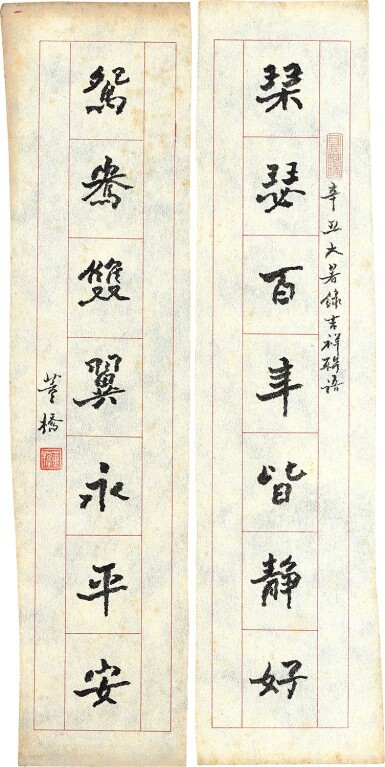 辛丑大暑錄吉祥聯語
琹瑟百年皆静好
鴛鴦雙翼永平安
董橋